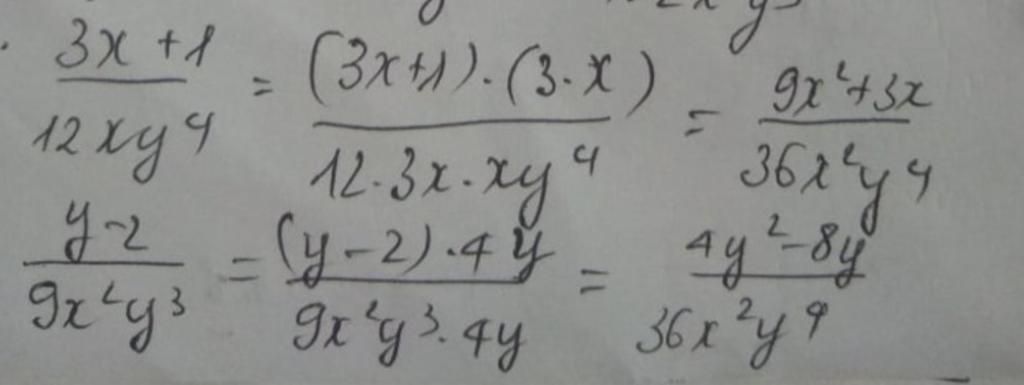 (3x+1)/(12xy⁴) = ((3x+1)·(3·x))/(12·3x·xy⁴) = (9x²+3x)/(36x²y⁴)
(y-2)/(9x²y³) = ((y-2)·4y)/(9x²y³·4y) = (4y²-8y)/(36x²y⁴)